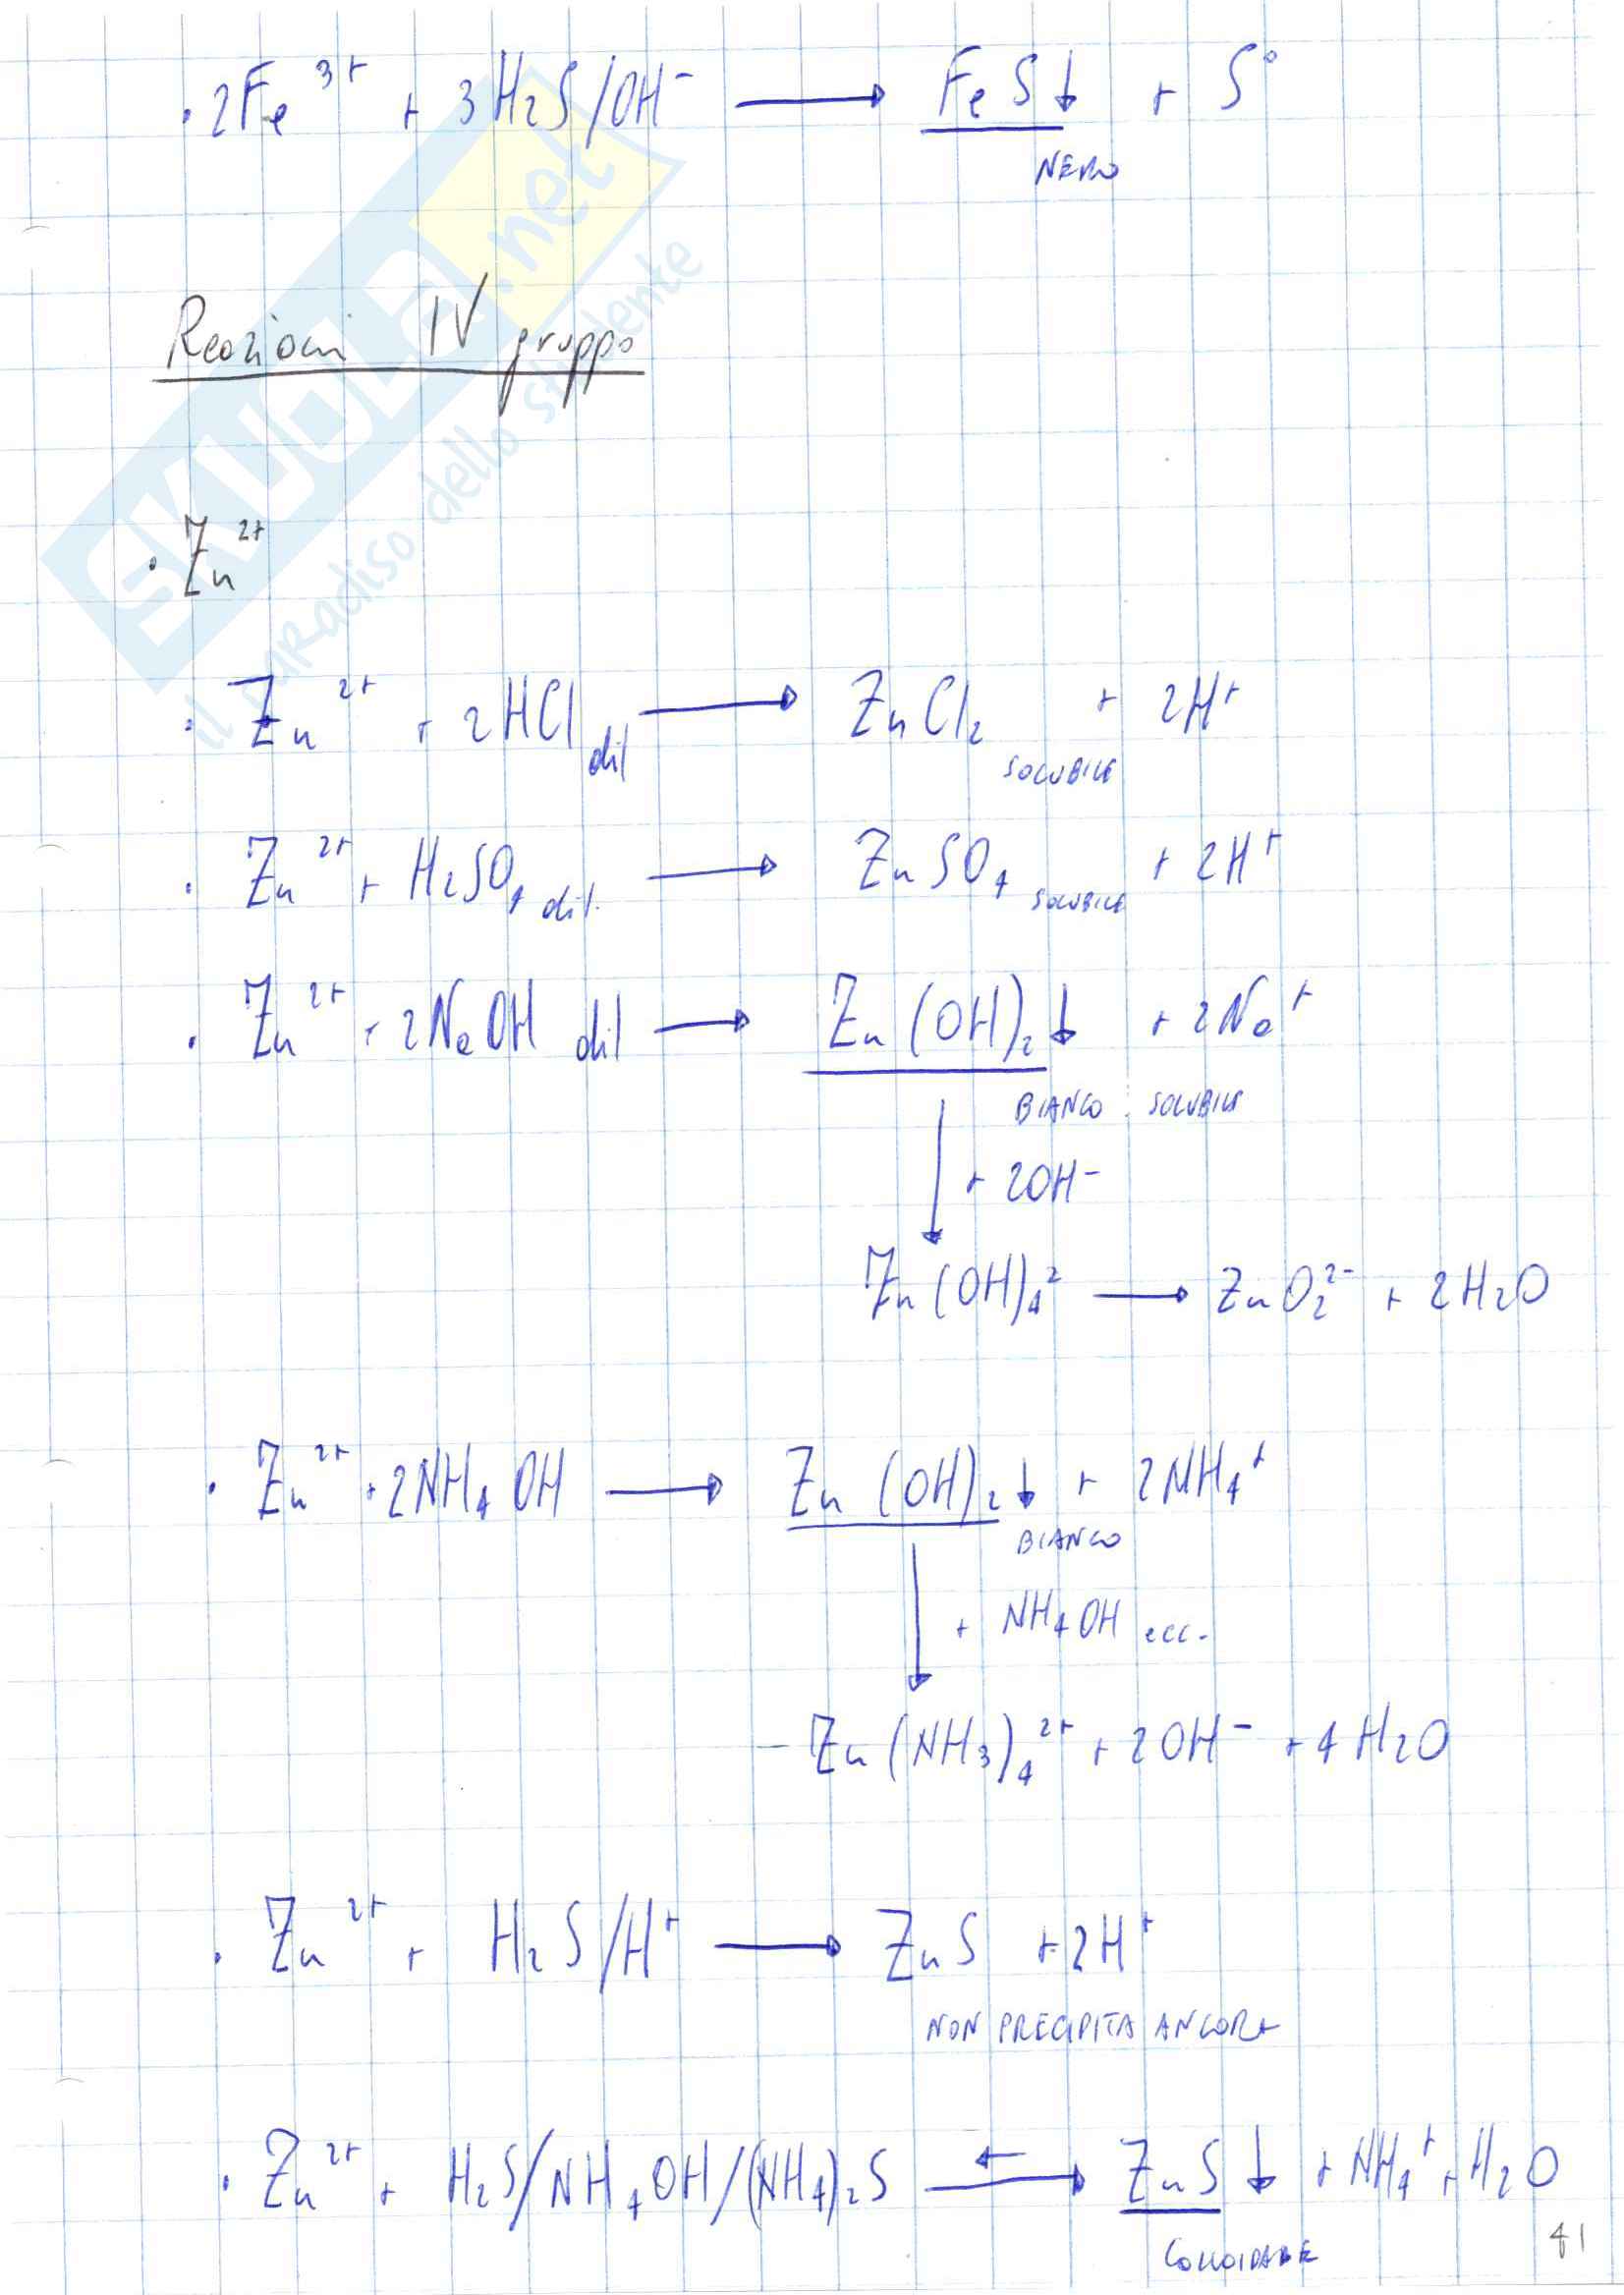 · 2Fe³⁺ + 3H₂S/OH⁻ ⟶ FeS↓ + S°
NERO
Reazioni IV gruppo
· Zn²⁺
· Zn²⁺ + 2HCl dil ⟶ ZnCl₂ SOLUBILE + 2H⁺
· Zn²⁺ + H₂SO₄ dil. ⟶ ZnSO₄ SOLUBILE + 2H⁺
· Zn²⁺ + 2NaOH dil ⟶ Zn(OH)₂↓ + 2Na⁺
BIANCO SOLUBILE
↓ + 2OH⁻
Zn(OH)₄² ⟶ ZnO₂²⁻ + 2H₂O
· Zn²⁺ + 2NH₄OH ⟶ Zn(OH)₂↓ + 2NH₄⁺
BIANCO
↓ + NH₄OH ecc.
- Zn(NH₃)₄²⁺ + 2OH⁻ + 4H₂O
· Zn²⁺ + H₂S/H⁺ ⟶ ZnS + 2H⁺
NON PRECIPITA ANCORA
· Zn²⁺ + H₂S/NH₄OH/(NH₄)₂S ⇄ ZnS↓ + NH₄⁺ + H₂O
COLLOIDALE
41
SKUOLA.net
il paradiso dello studente